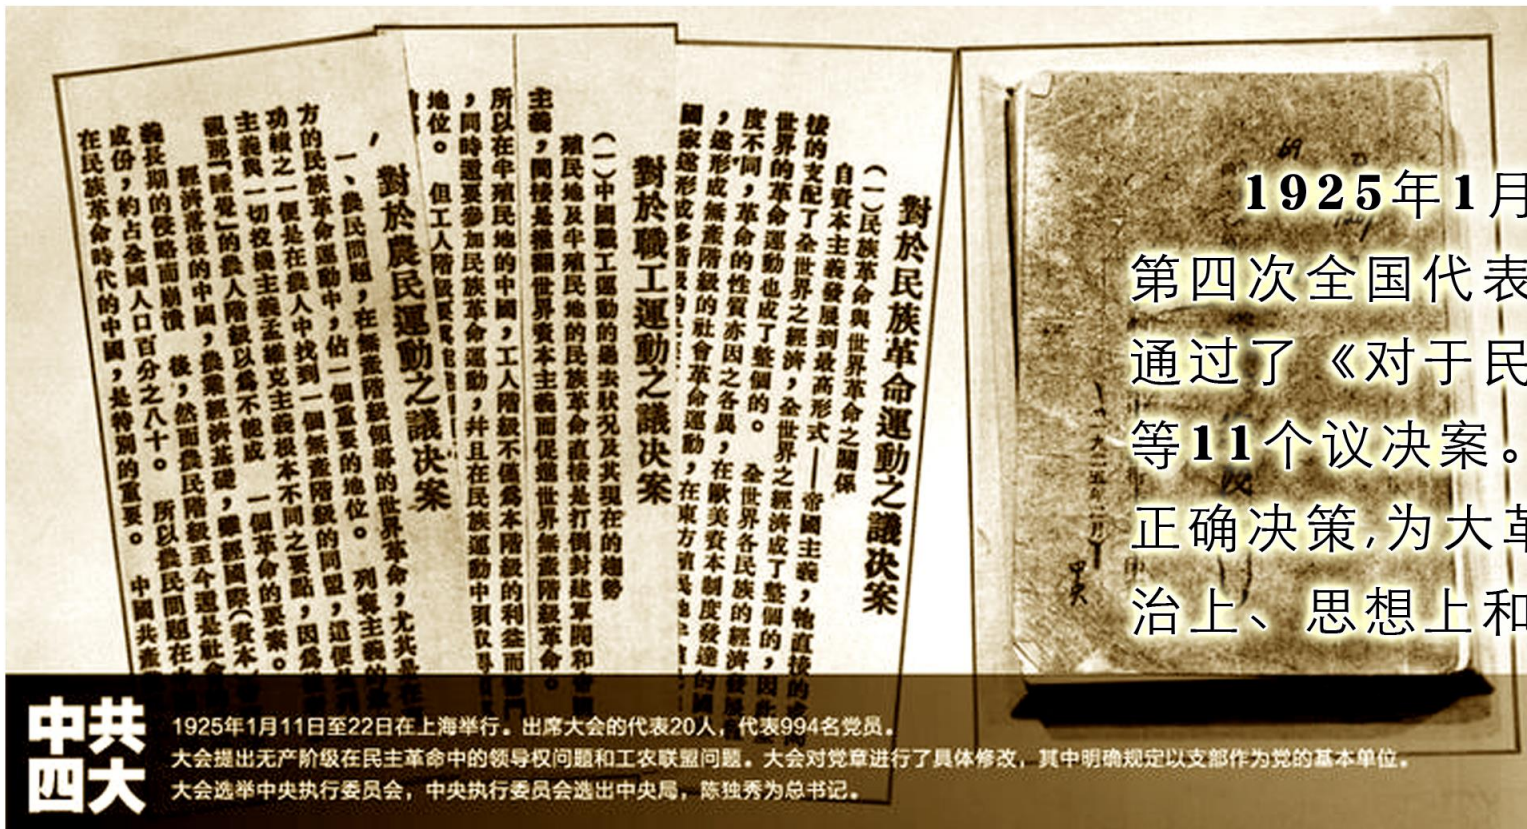 對於民族革命運動之議決案
(一)民族革命與世界革命之關係
自資本主義發展到最高形式——帝國主義,牠直接的或間
接的支配了全世界之經濟,全世界之經濟成了整個的,因此全
世界的革命運動也成了整個的。 全世界各民族的經濟發展
度不同,革命的性質亦因之各異,在歐美資本制度發達的國
,遂形成無產階級的社會革命運動,在東方殖民地半殖民
對於職工運動之議決案
(一)中國職工運動的過去狀況及其現在的趨勢
殖民地及半殖民地的民族革命直接是打倒封建軍閥和帝國
主義,間接是推翻世界資本主義而促進世界無產階級革命。
所以在半殖民地的中國,工人階級不僅爲本階級的利益而奮鬥
,同時還要參加民族革命運動,并且在民族運動中須取得
地位。 但工人階級要
對於農民運動之議決案
一、農民問題,在無產階級領導的世界革命,尤其是在
方的民族革命運動中,佔一個重要的地位。 列寧主義的
功績之一便是在農人中找到一個無產階級的同盟,這便是
主義與一切投機主義孟維克主義根本不同之要點,因爲
視那『睡覺』的農人階級以爲不能成 一個革命的要素。
經濟落後的中國,農業經濟基礎,雖經國際(資本
義長期的侵略而崩潰 後,然而農民階級至今還是社會
成份,約占全國人口百分之八十。 所以農民問題在
在民族革命時代的中國,是特別的重要。 中國共產
1925年1月
第四次全国代表
通过了《对于民
等11个议决案。
正确决策,为大革
治上、思想上和
中共
四大
1925年1月11日至22日在上海举行。出席大会的代表20人,代表994名党员。
大会提出无产阶级在民主革命中的领导权问题和工农联盟问题。大会对党章进行了具体修改,其中明确规定以支部作为党的基本单位。
大会选举中央执行委员会,中央执行委员会选出中央局,陈独秀为总书记。